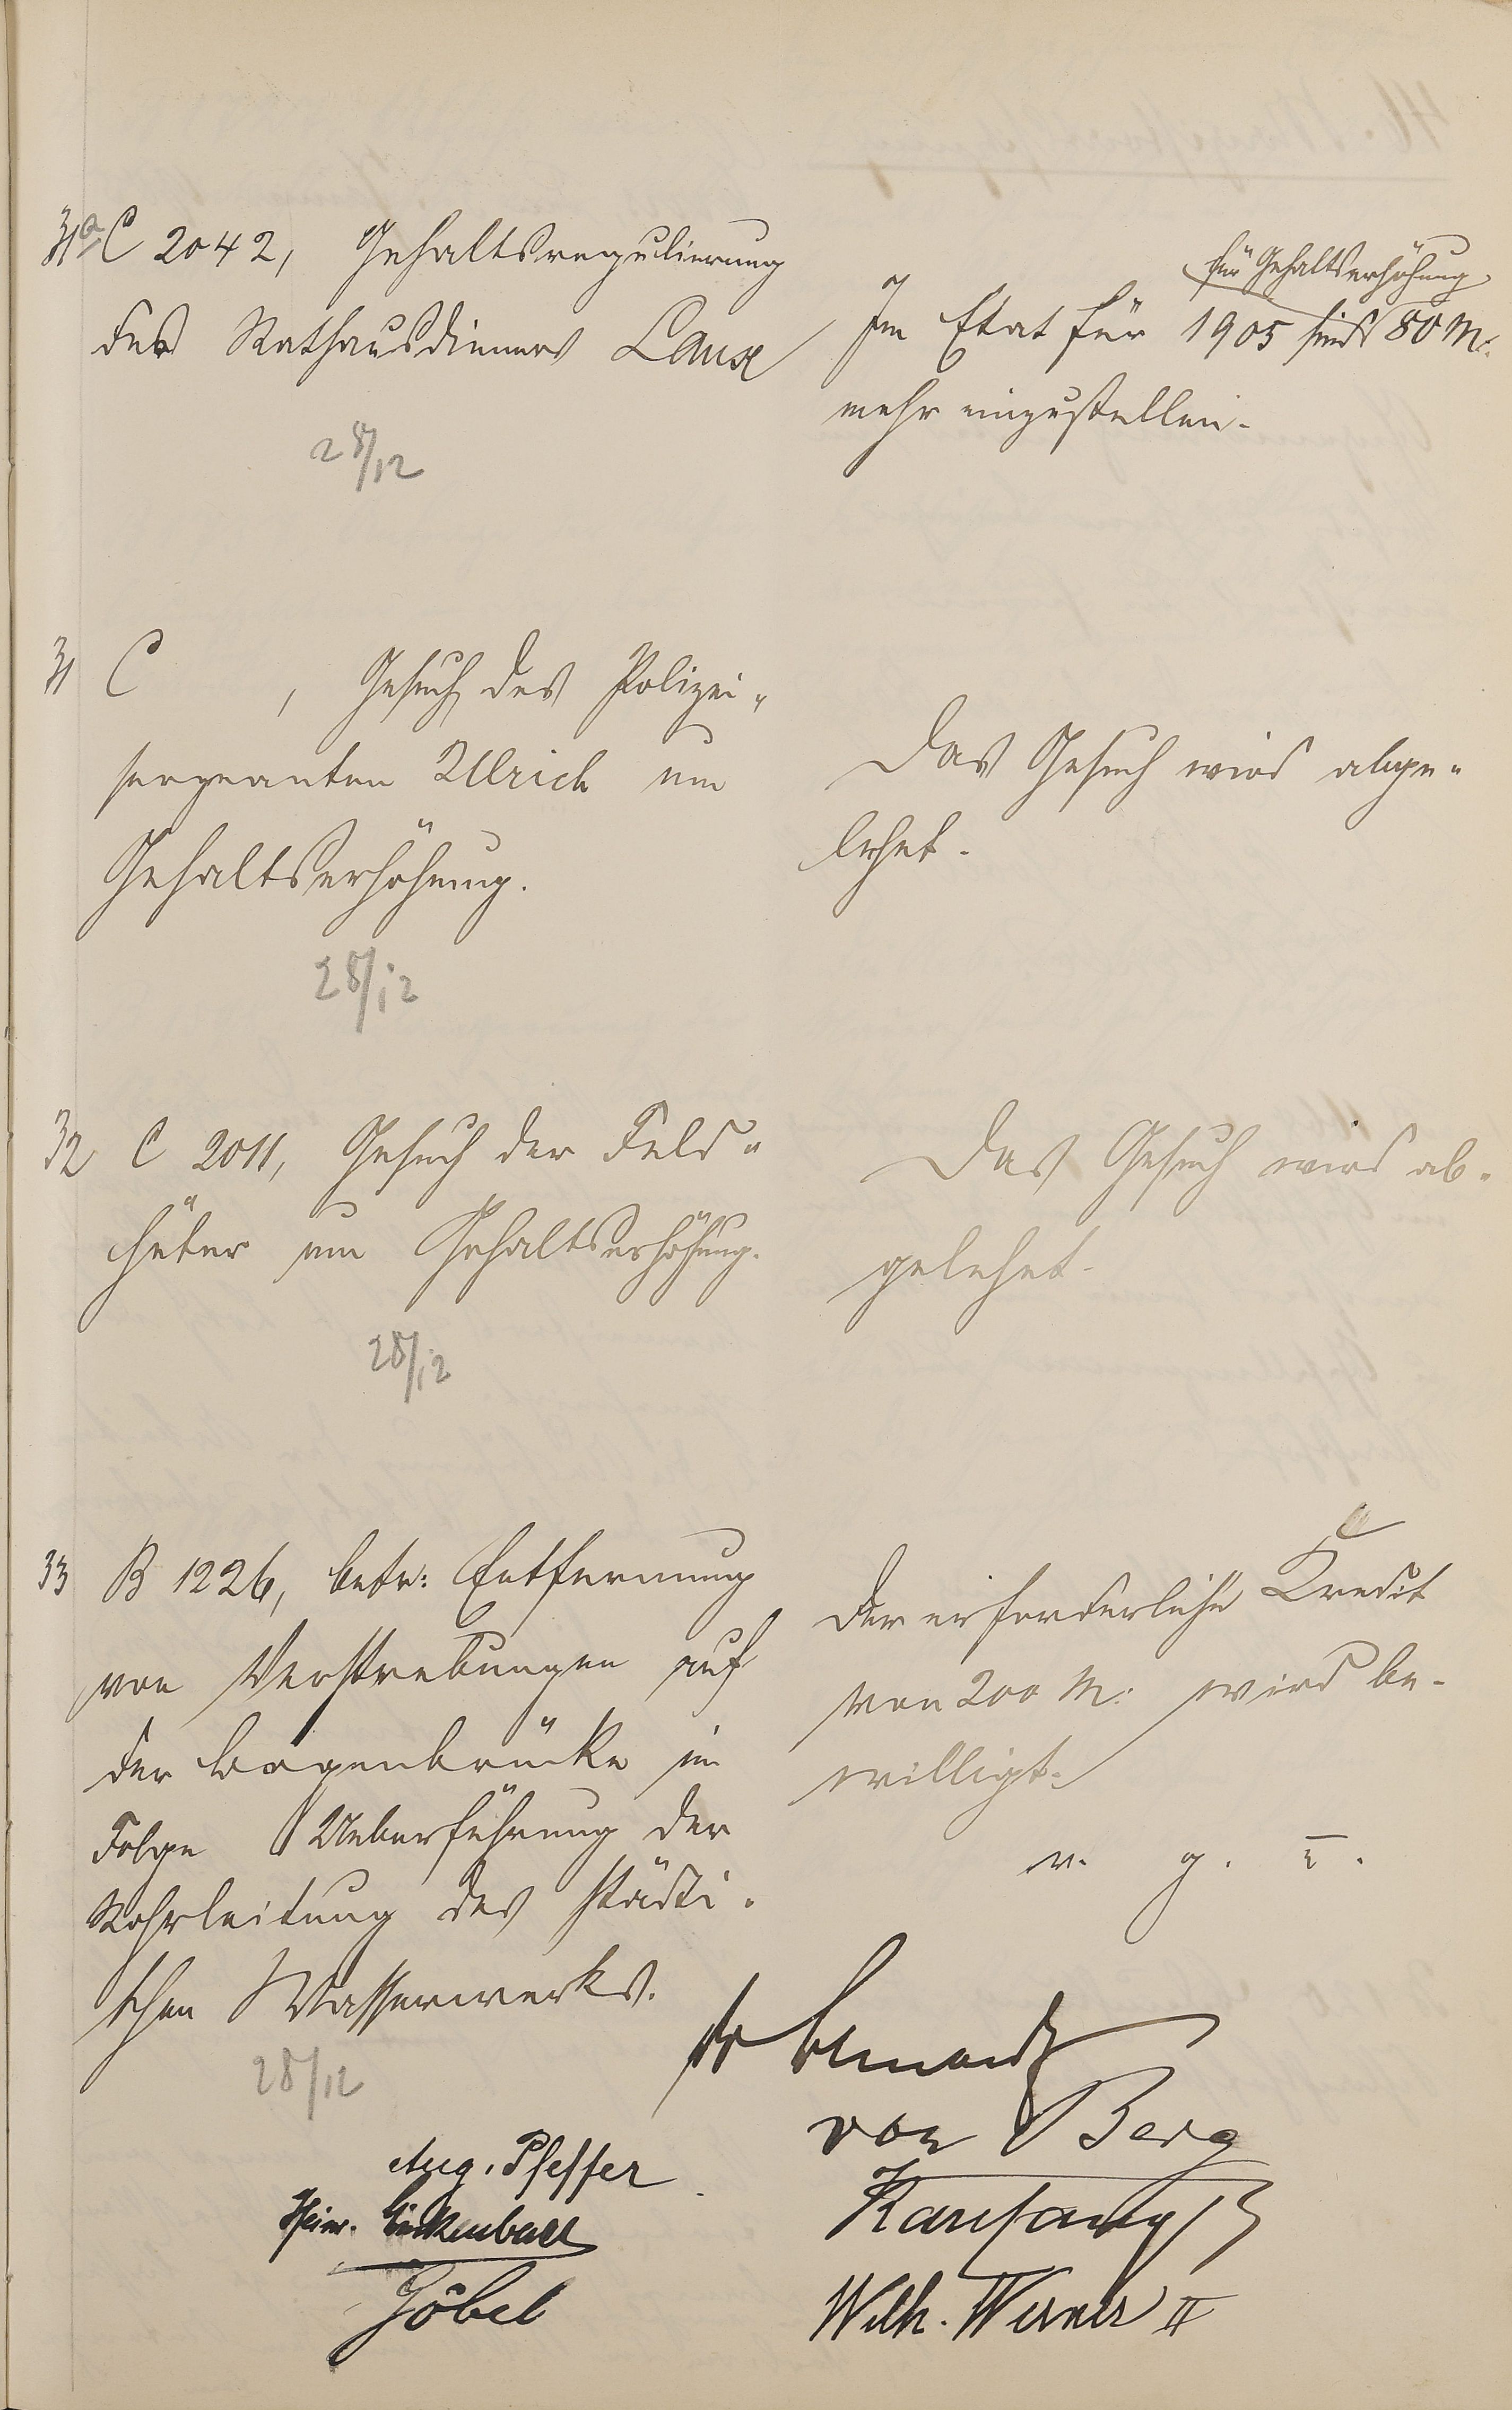 31a C 2042, Gehaltsregulierung
des Rathausdieners Laux
28/12
für Gehaltserhöhung
Im Etat für 1905 sind 50 M.
mehr einzustellen.
31 C , Gesuch des Polizei-
sergeanten Ulrich um
Gehaltserhöhung.
28/12
Das Gesuch wird abge-
lehnt.
32 C 2011, Gesuch der Feld-
hüter um Gehaltserhöhung.
28/12
Das Gesuch wird ab-
gelehnt.
33 B 1226, betr: Entfernung
von Verstrebungen auf
der Bogenbrücke in
Folge Ueberführung der
Rohrleitung des städti-
schen Wasserwerks.
28/12
Der erforderliche Kredit
von 200 M. wird be-
willigt.
v. g. u.
von Berg
Aug. Pfeffer
Heinr.
Wilh. Werner II
Jöbel